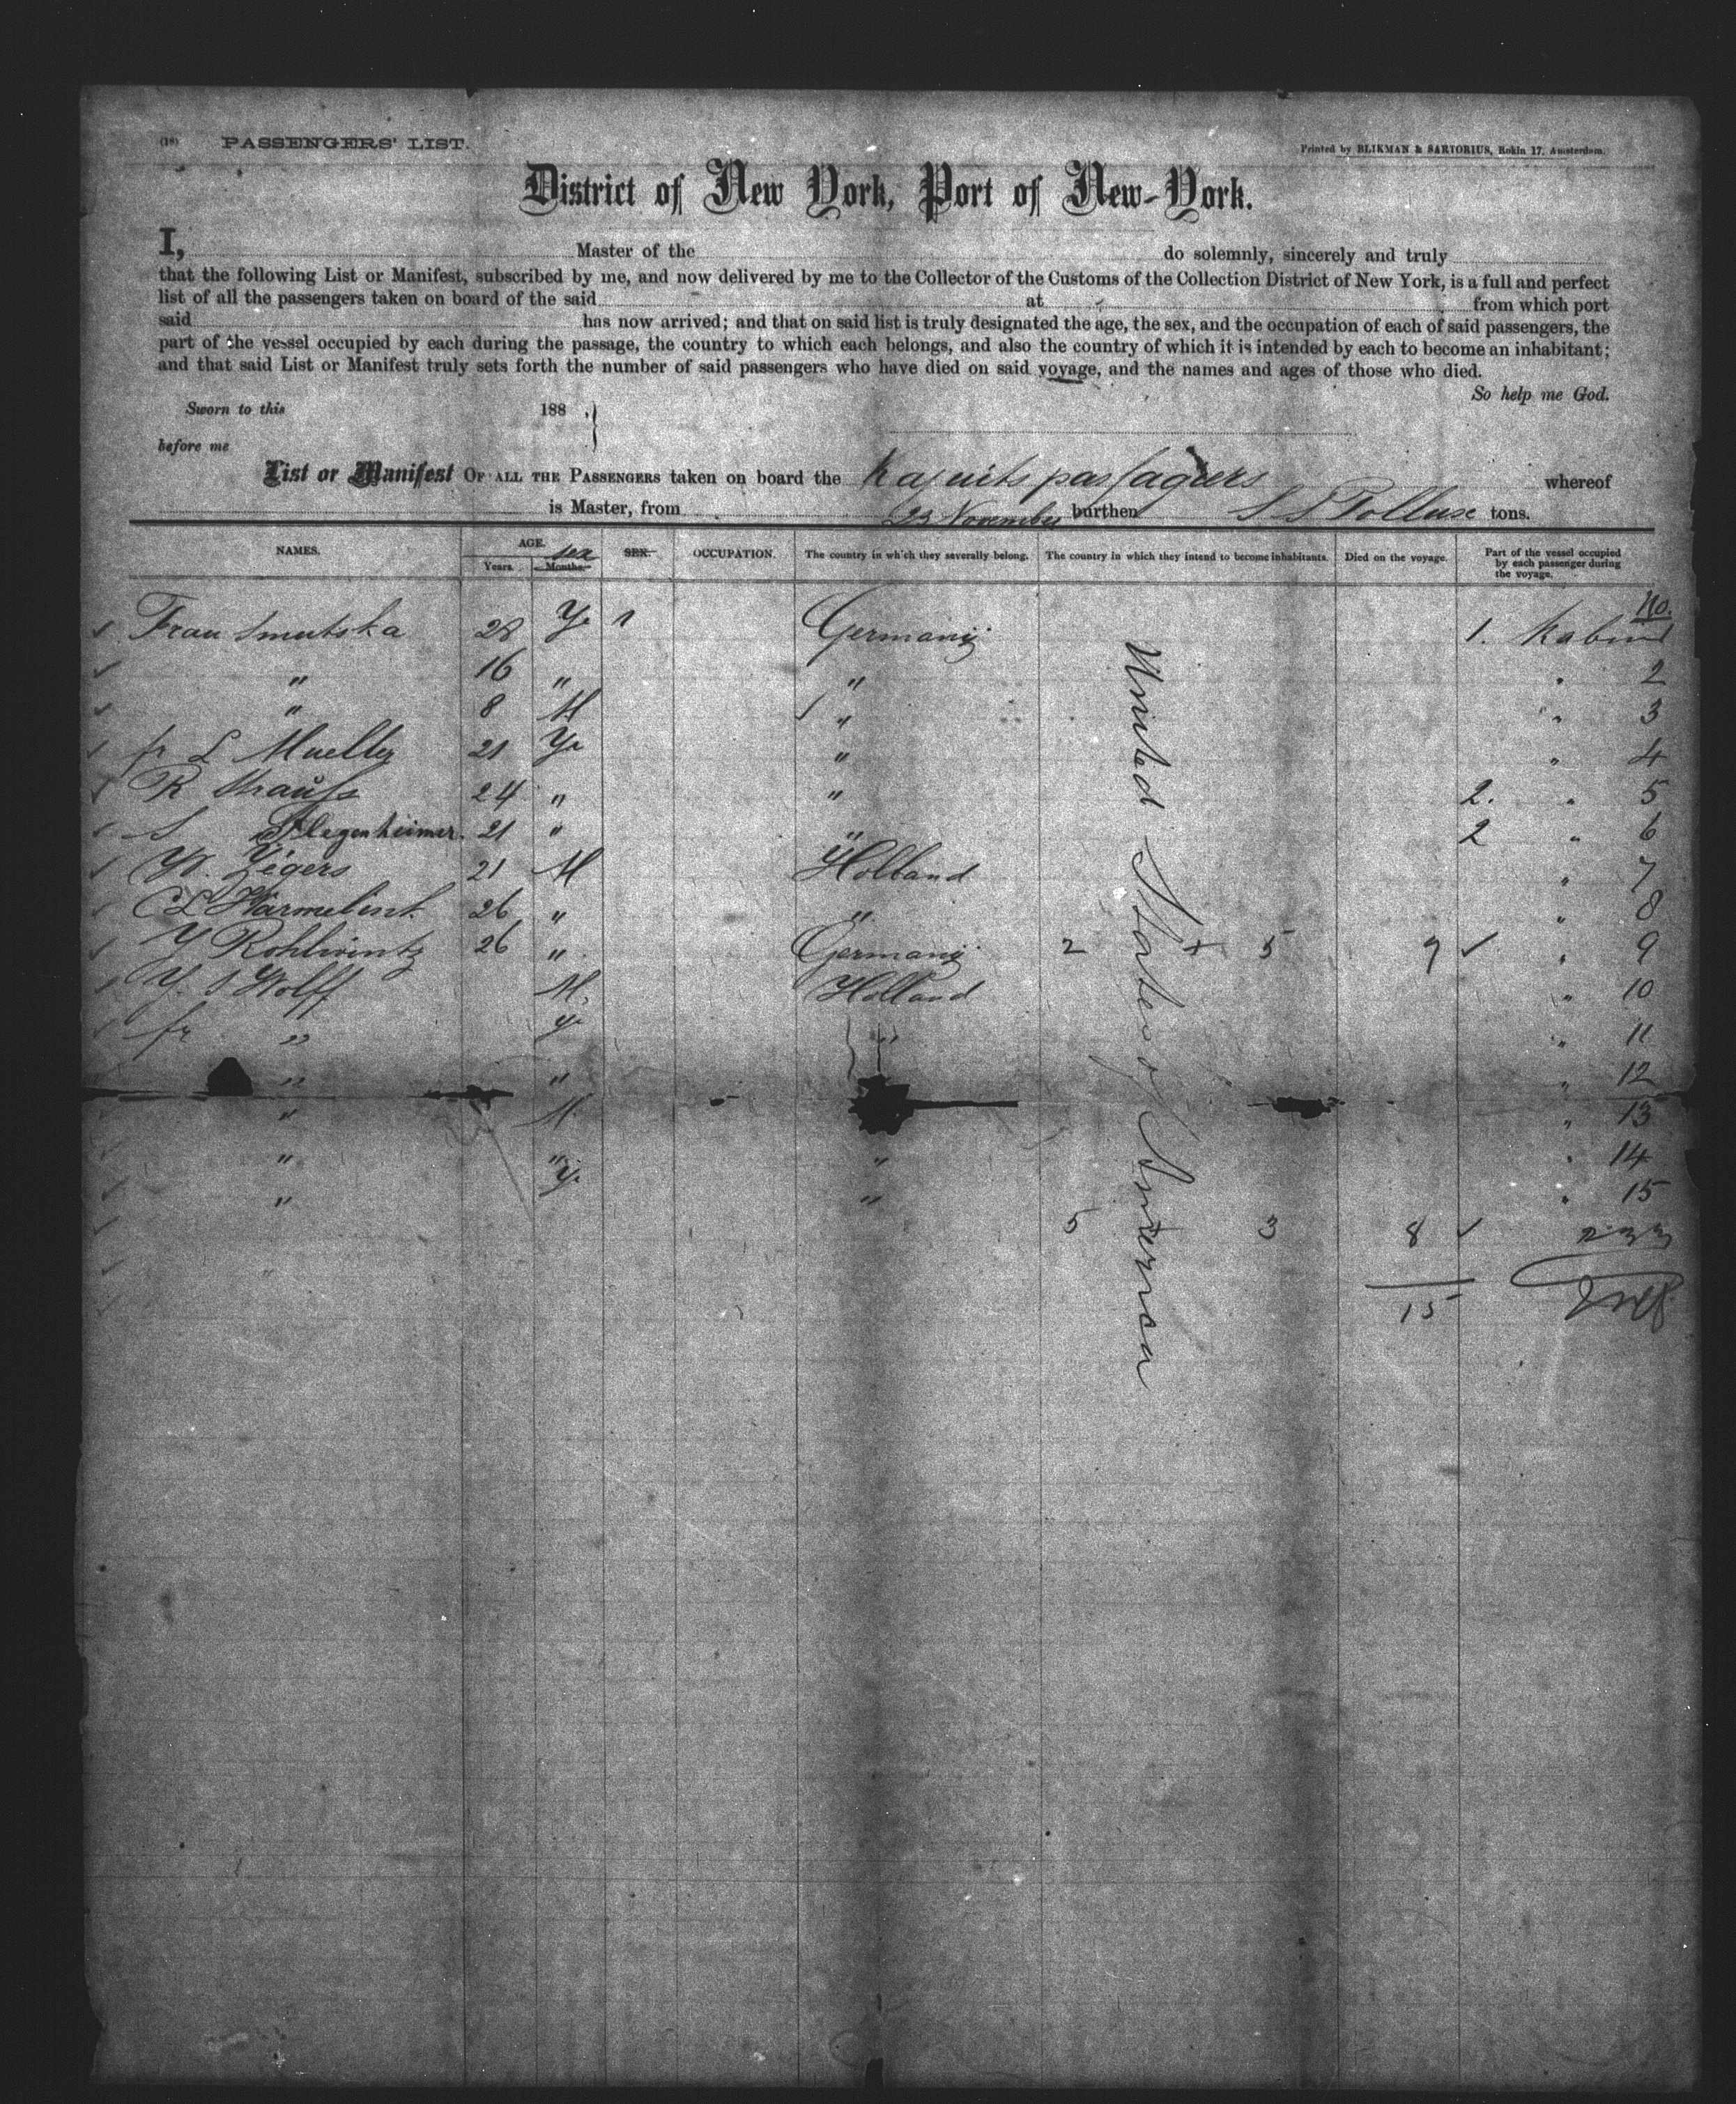 (18) PASSENGERS' LIST.
Printed by BLIKMAN & SARTORIUS, Rokin 17, Amsterdam.
District of New York, Port of New-York.
I, Master of the do solemnly, sincerely and truly
that the following List or Manifest, subscribed by me, and now delivered by me to the Collector of the Customs of the Collection District of New York, is a full and perfect
list of all the passengers taken on board of the said at from which port
said has now arrived; and that on said list is truly designated the age, the sex, and the occupation of each of said passengers, the
part of the vessel occupied by each during the passage, the country to which each belongs, and also the country of which it is intended by each to become an inhabitant;
and that said List or Manifest truly sets forth the number of said passengers who have died on said voyage, and the names and ages of those who died.
So help me God.
Sworn to this 188 ,
before me
List or Manifest OF ALL THE PASSENGERS taken on board the Kajuits passagiers whereof
is Master, from 23 November burthen S S Pollux tons.
NAMES. AGE. Years. Months. sex SEX. OCCUPATION. The country in which they severally belong. The country in which they intend to become inhabitants. Died on the voyage. Part of the vessel occupied by each passenger during the voyage.
No.
Frau Smutska 28 Germany 1.
" 16 " " " 2
" 8 M " " 3
fr L Mueller 21 " " 4
R Strauss 24 " " 2. " 5
S Flegenheimer 21 " " 2 " 6
W. Zegers 21 M Holland " 7
C L 26 " " " 8
Y 26 " Germany 2 + 5 7 " 9
Y. S Wolff M. Holland " 10
fr " " 11
" " " 12
" M. " 13
" " " " 14
" " " 15
United States of America
5 3 8
15